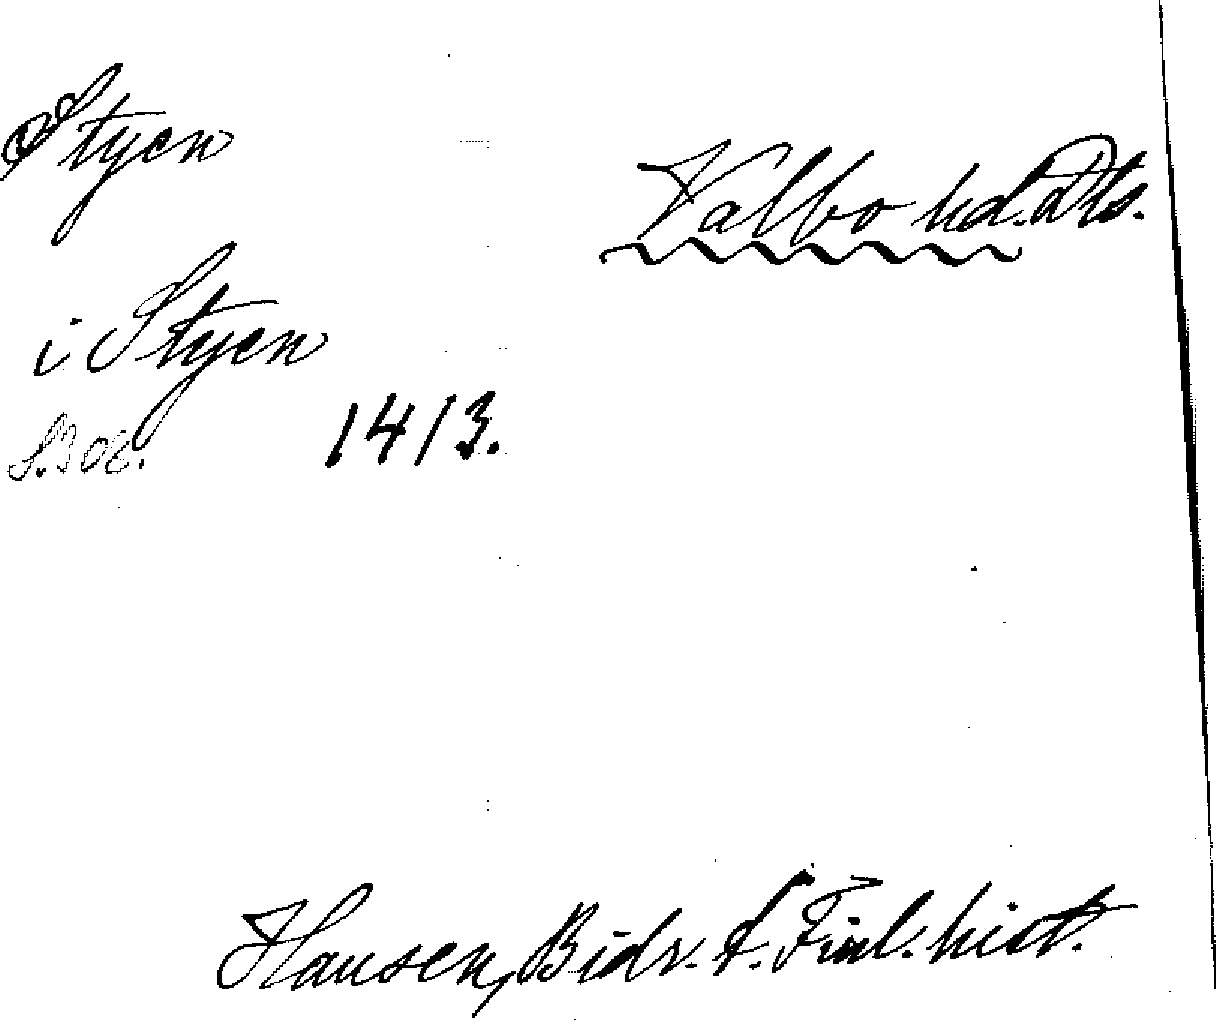 Styen
Valbo hd. Dls.
i Styen
S. 302.
1413.
Hausen, Bidr. t. Finl. hist.